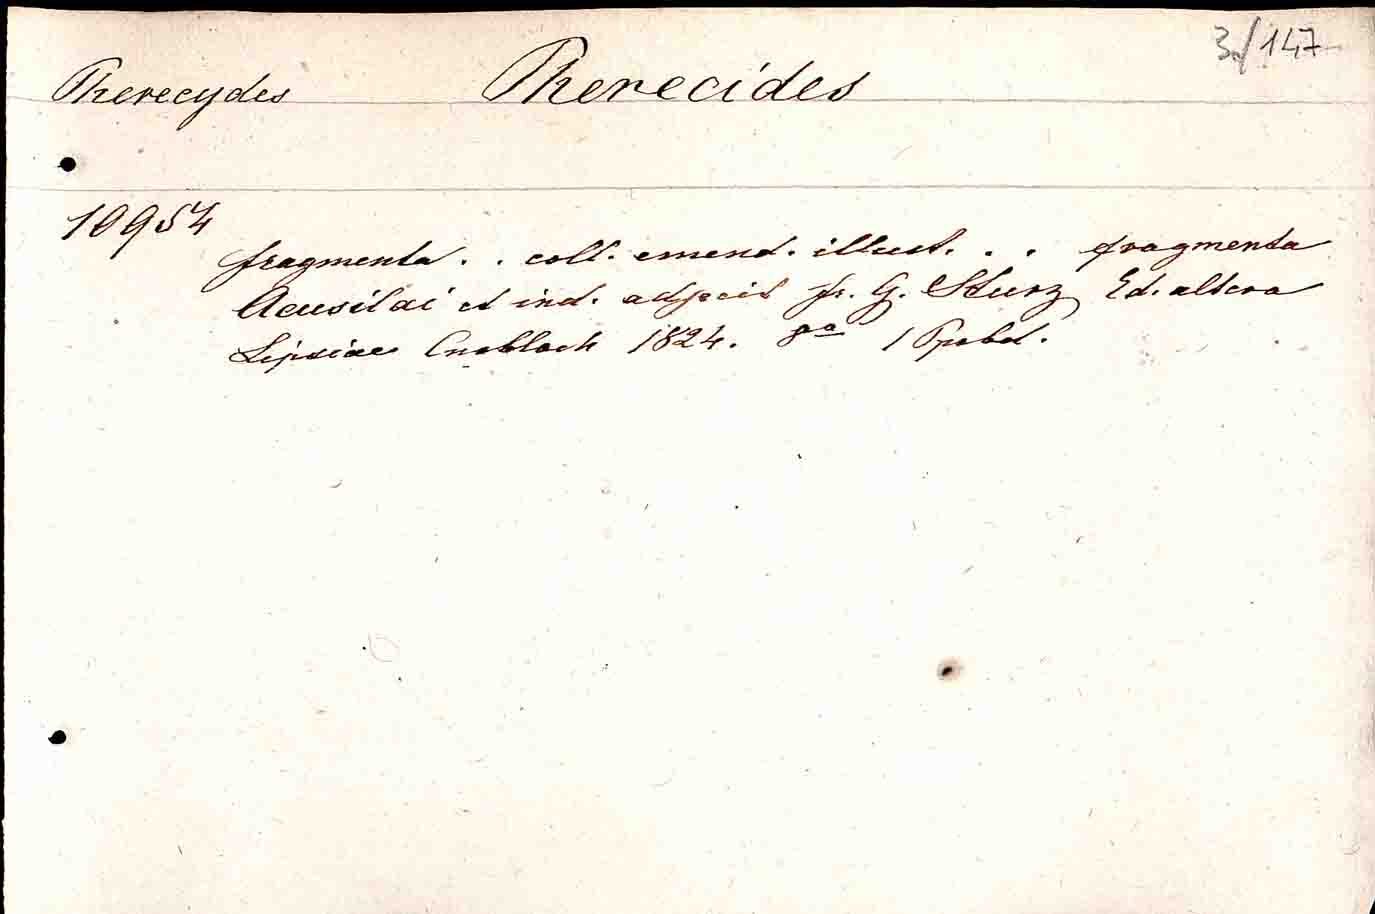 3./147
Pherecydes Pherecides
10954
fragmenta . . coll. emend. illust. . . fragmenta
Acusilai et ind. adjecit fr. G. Sturz Ed. altera
Lipsiae Cnobloch 1824. 8° 1 Ppbd.